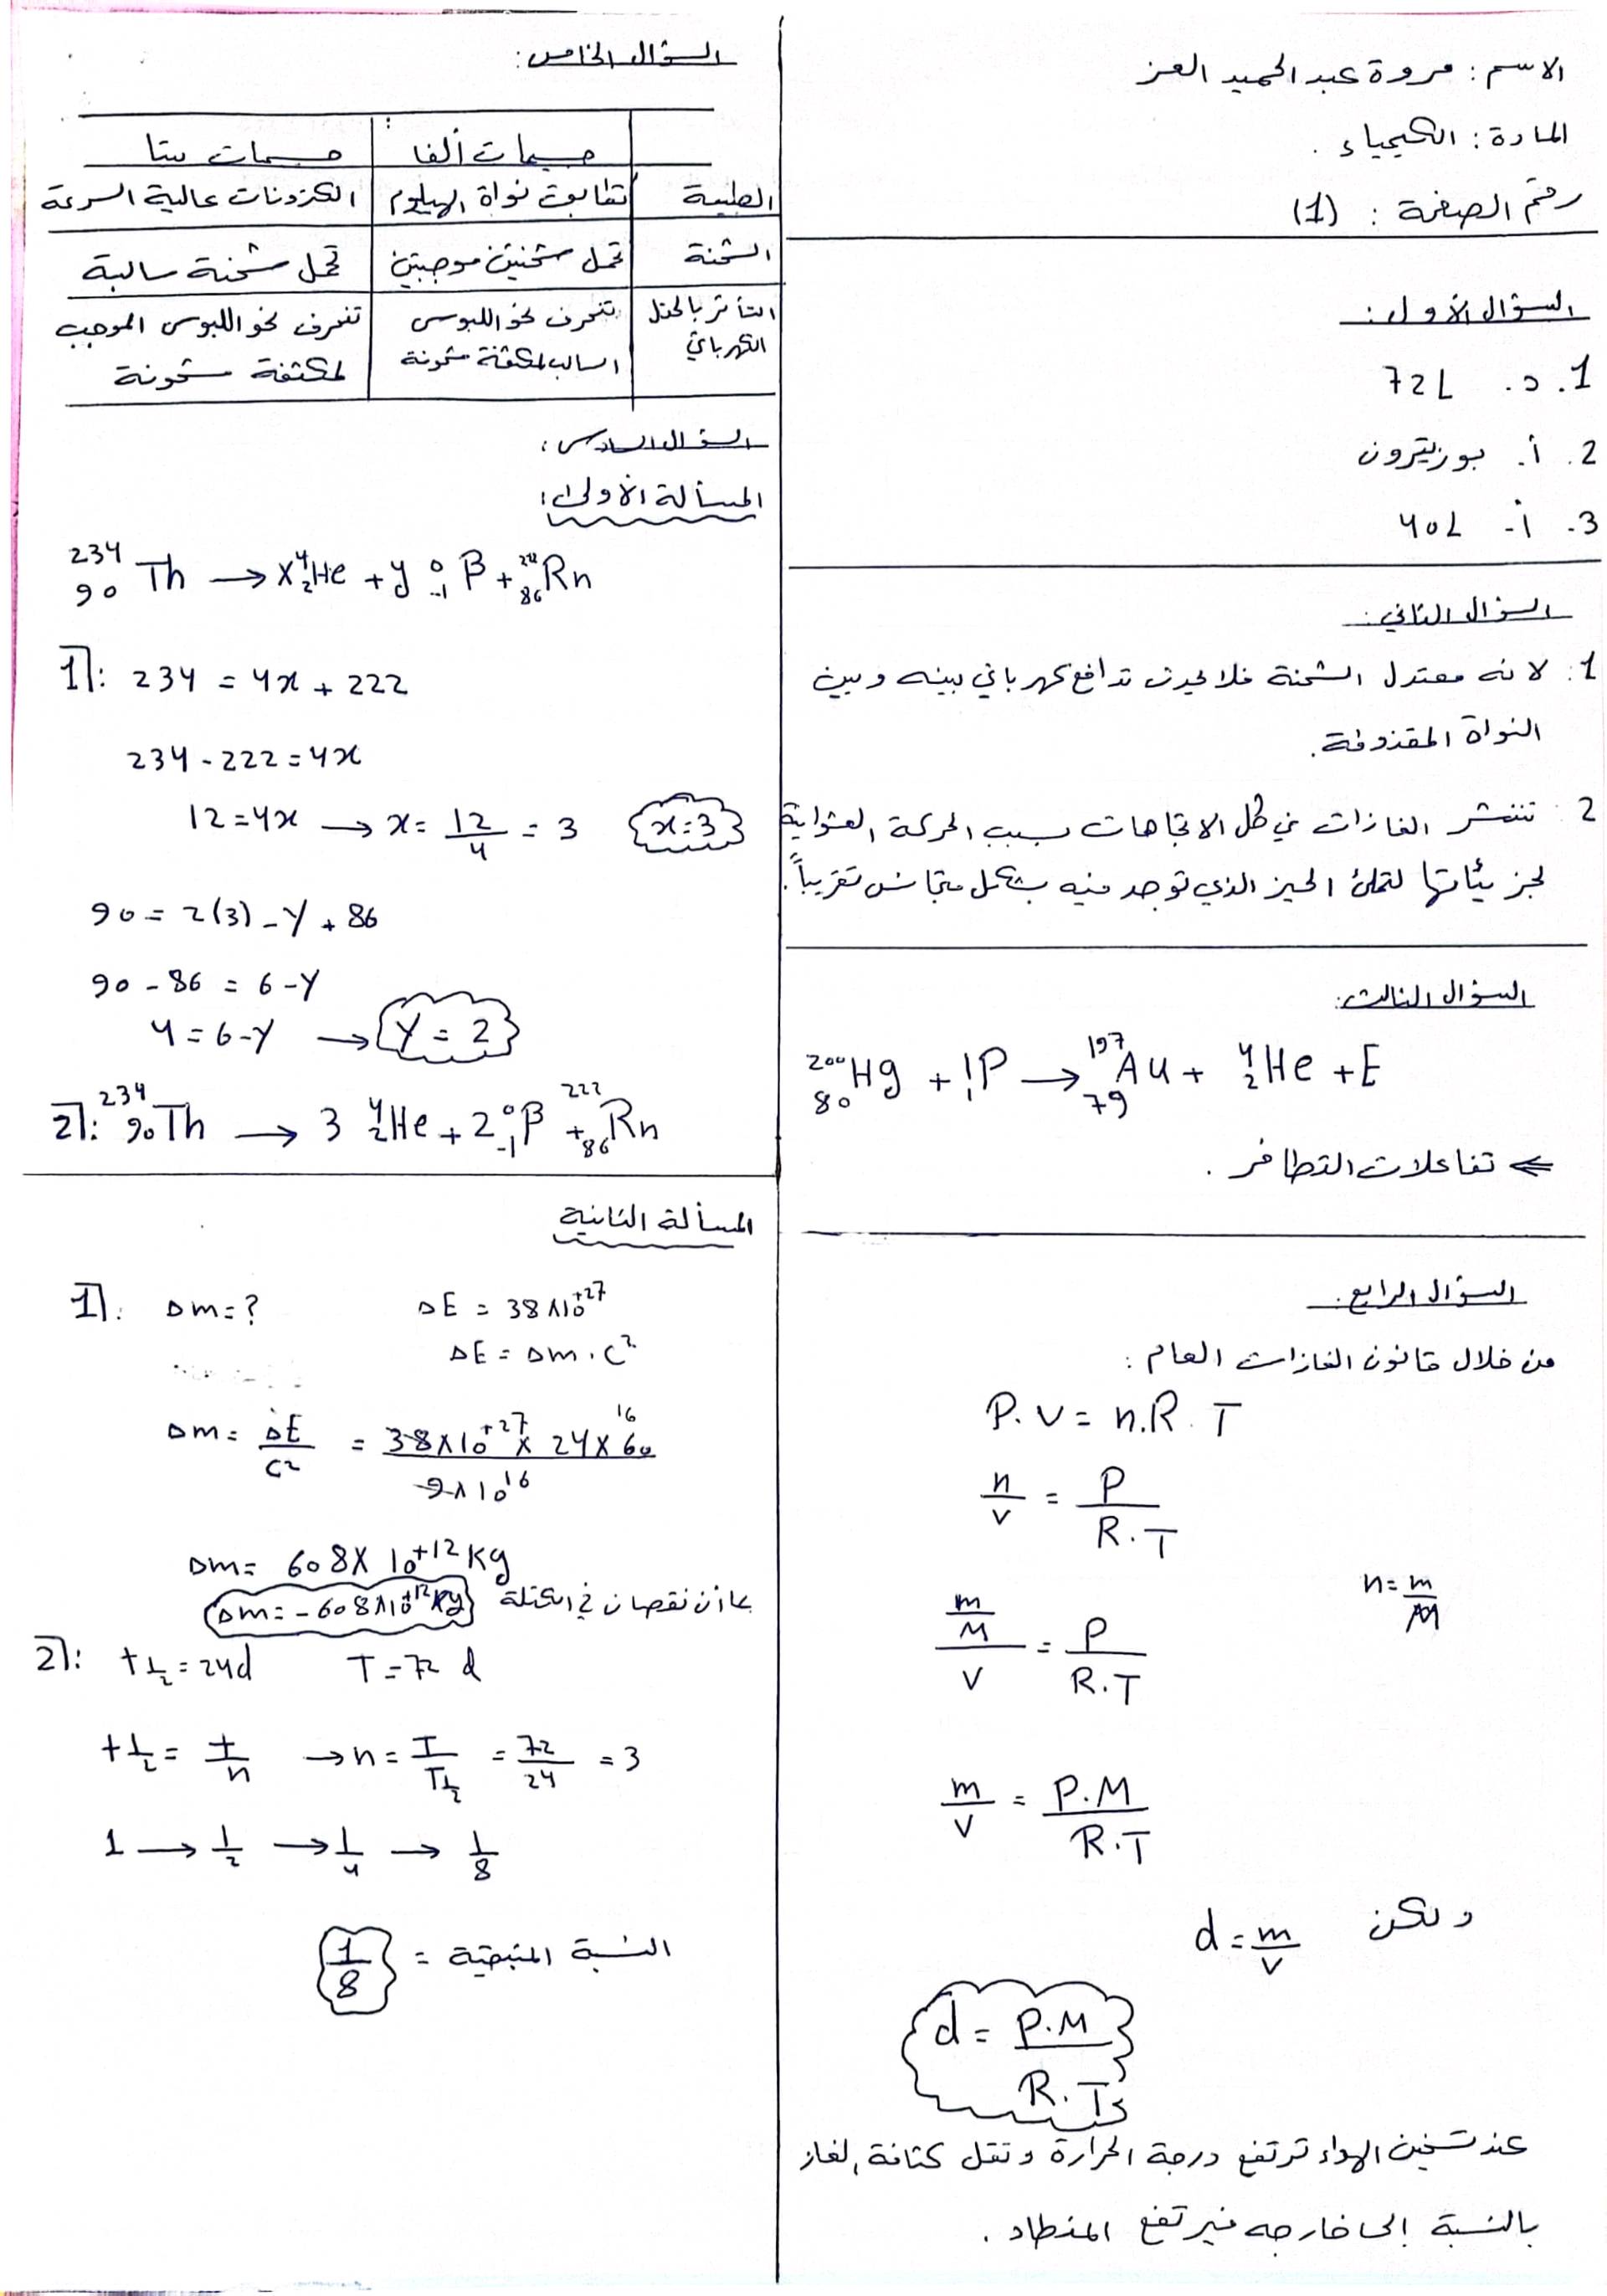 الاسم : مروة عبد الحميد العز
المادة : الكيمياء .
رقم الصفحة : (1)
السؤال الأول :
1. د. 72L
2. أ. بوزيترون
3- أ- 40L
السؤال الثاني :
1: لانه معتدل الشحنة فلا يحدث تدافع كهربائي بينه وبين
النواة المقذوفة.
2: تنتشر الغازات في كل الاتجاهات بسبب الحركة العشوائية
لجزيئاتها لتملئ الحيز الذي توجد فيه بشكل متجانس تقريباً.
السؤال الثالث:
²⁰⁰₈₀Hg + ¹₁P → ¹⁹⁷₇₉Au + ⁴₂He + E
⇐ تفاعلات التطافر .
السؤال الرابع:
من خلال قانون الغازات العام :
P.V = n.R.T
n/V = P/R.T
n = m/M
(m/M)/V = P/R.T
m/V = P.M/R.T
ولكن d = m/V
d = P.M/R.T
عند تسخين الهواء ترتفع درجة الحرارة وتقل كثافة الغاز
بالنسبة إلى خارجه فيرتفع المنطاد .
السؤال الخامس:
جسيمات ألفا | جسيمات بيتا
الطبيعة | تطابق نواة الهيليوم | الكترونات عالية السرعة
الشحنة | تحمل شحنتين موجبتين | تحمل شحنة سالبة
التأثر بالحقل الكهربائي | تنحرف نحو اللبوس السالب لمكثفة مشحونة | تنحرف نحو اللبوس الموجب لمكثفة مشحونة
السؤال السادس:
المسألة الأولى:
²³⁴₉₀Th → x⁴₂He + y⁰₋₁β + ²²²₈₆Rn
1]: 234 = 4x + 222
234 - 222 = 4x
12 = 4x → x = 12/4 = 3 x = 3
90 = 2(3) - y + 86
90 - 86 = 6 - y
4 = 6 - y → y = 2
2]: ²³⁴₉₀Th → 3 ⁴₂He + 2⁰₋₁β + ²²²₈₆Rn
المسألة الثانية
1]: Δm = ? ΔE = 38×10⁺²⁷
ΔE = Δm . C²
Δm = ΔE/C² = 38×10⁺²⁷ × 24 × 60/9×10¹⁶ 16
Δm = 608×10⁺¹² Kg
بما أن نقصان في الكتلة Δm = -608×10⁺¹² Kg
2]: t½ = 24d T = 72 d
t½ = t/n → n = T/T½ = 72/24 = 3
1 → 1/2 → 1/4 → 1/8
النسبة المتبقية = 1/8